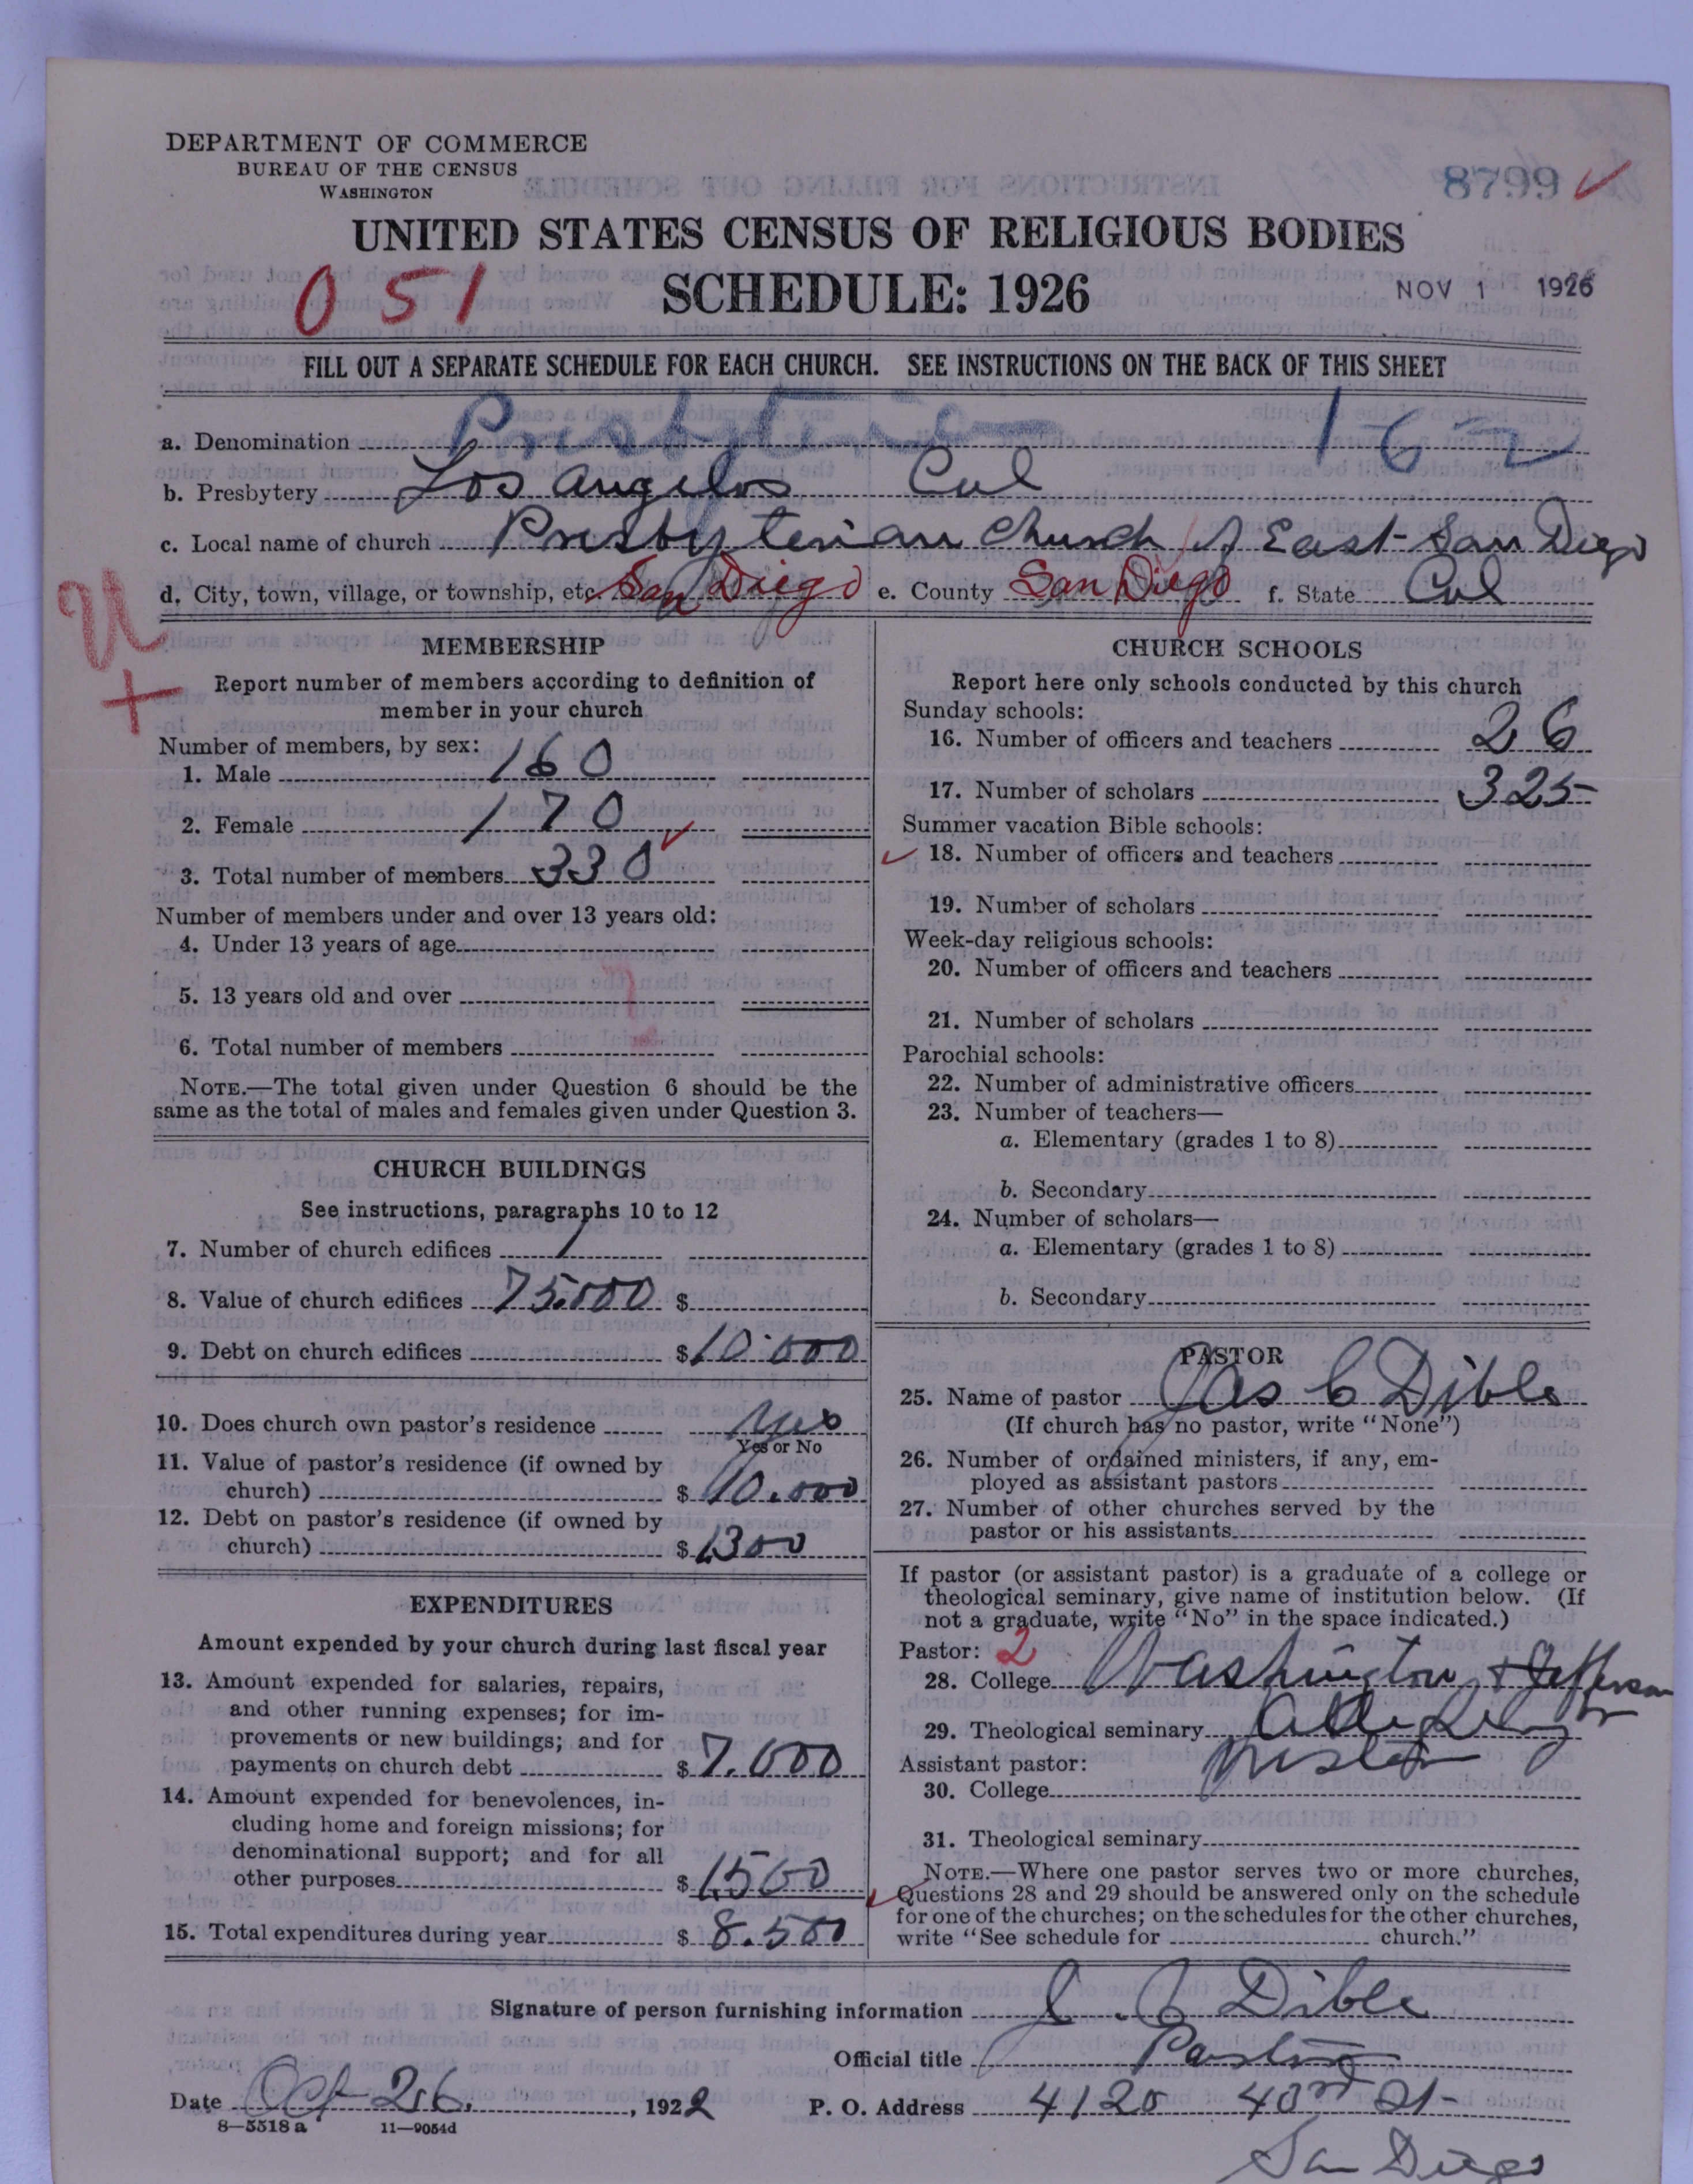 DEPARTMENT OF COMMERCE
BUREAU OF THE CENSUS
WASHINGTON
8799 ✓
UNITED STATES CENSUS OF RELIGIOUS BODIES
SCHEDULE: 1926
051
NOV 1 1926
FILL OUT A SEPARATE SCHEDULE FOR EACH CHURCH. SEE INSTRUCTIONS ON THE BACK OF THIS SHEET
a. Denomination Presbyterian 162
b. Presbytery Los Angelos Cal
c. Local name of church Presbyterian Church of East San Diego
d. City, town, village, or township, etc. San Diego e. County San Diego f. State Cal
MEMBERSHIP
Report number of members according to definition of
member in your church
Number of members, by sex:
1. Male 160
2. Female 170
3. Total number of members 330 ✓
Number of members under and over 13 years old:
4. Under 13 years of age
5. 13 years old and over
6. Total number of members
NOTE.—The total given under Question 6 should be the
same as the total of males and females given under Question 3.
CHURCH BUILDINGS
See instructions, paragraphs 10 to 12
7. Number of church edifices 1
8. Value of church edifices 75.000 $
9. Debt on church edifices $ 10.000
10. Does church own pastor's residence Yes
Yes or No
11. Value of pastor's residence (if owned by
church) $ 10.000
12. Debt on pastor's residence (if owned by
church) $ 1300
EXPENDITURES
Amount expended by your church during last fiscal year
13. Amount expended for salaries, repairs,
and other running expenses; for im-
provements or new buildings; and for
payments on church debt $ 7.000
14. Amount expended for benevolences, in-
cluding home and foreign missions; for
denominational support; and for all
other purposes $ 1500
15. Total expenditures during year $ 8.500
CHURCH SCHOOLS
Report here only schools conducted by this church
Sunday schools:
16. Number of officers and teachers 26
17. Number of scholars 325
Summer vacation Bible schools:
✓ 18. Number of officers and teachers
19. Number of scholars
Week-day religious schools:
20. Number of officers and teachers
21. Number of scholars
Parochial schools:
22. Number of administrative officers
23. Number of teachers—
a. Elementary (grades 1 to 8)
b. Secondary
24. Number of scholars—
a. Elementary (grades 1 to 8)
b. Secondary
PASTOR
25. Name of pastor Jas C Dible
(If church has no pastor, write "None")
26. Number of ordained ministers, if any, em-
ployed as assistant pastors
27. Number of other churches served by the
pastor or his assistants
If pastor (or assistant pastor) is a graduate of a college or
theological seminary, give name of institution below. (If
not a graduate, write "No" in the space indicated.)
Pastor: 2
28. College Washington & Jefferson
29. Theological seminary
Assistant pastor:
30. College
31. Theological seminary
NOTE.—Where one pastor serves two or more churches,
Questions 28 and 29 should be answered only on the schedule
for one of the churches; on the schedules for the other churches,
write "See schedule for church."
Signature of person furnishing information J. C. Dible
Official title Pastor
Date Oct 26, 1922 P. O. Address 4120 43rd St
8—5518 a 11—9054d
San Diego